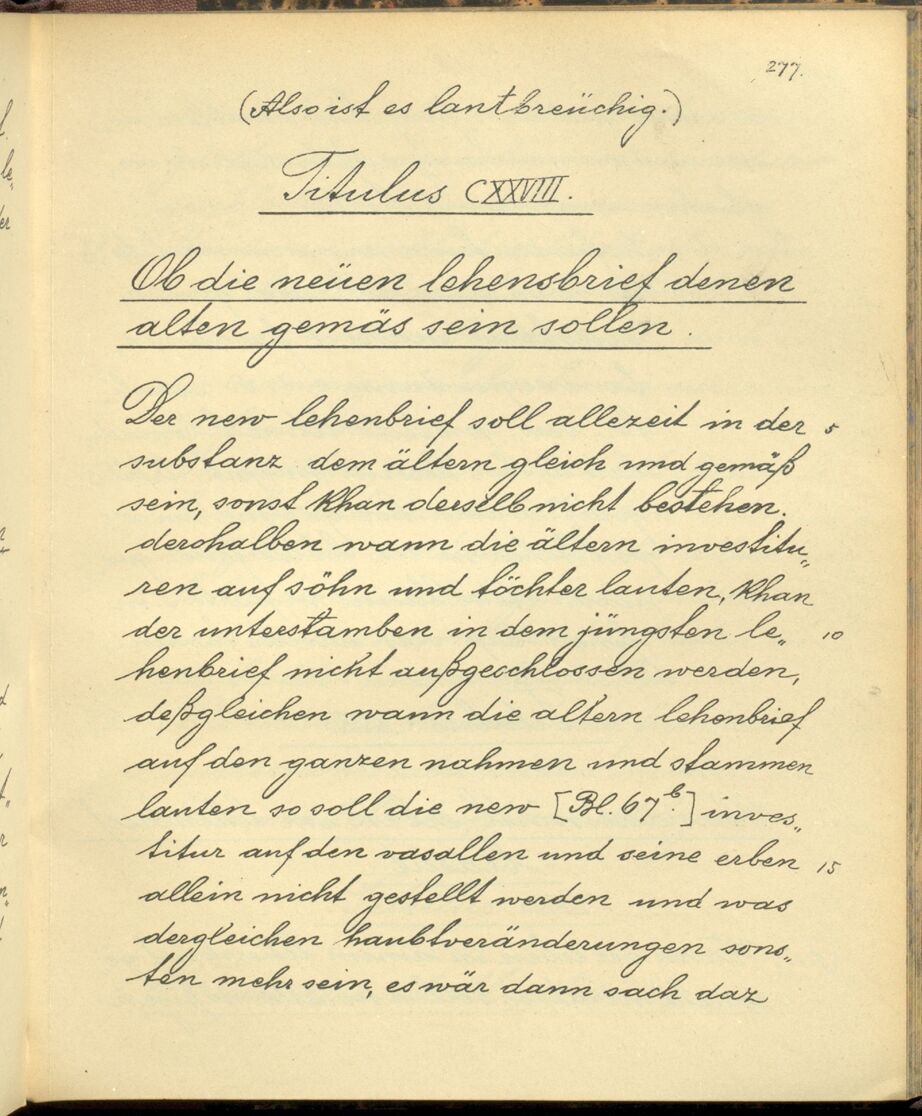 277.
(Also ist es lantbreüchig.)
Titulus CXXVIII.
Ob die neüen lehensbrief denen
alten gemäs sein sollen.
Der new lehenbrief soll allezeit in der 5
substanz dem ältern gleich und gemäß
sein, sonst khan derselb nicht bestehen.
derohalben wann die ältern investitu„
ren auf söhn und töchter lauten, khan
der unterstamben in dem jüngsten le„ 10
henbrief nicht außgeschlossen werden,
deßgleichen wann die altern lehenbrief
auf den ganzen nahmen und stammen
lauten so soll die new [Bl. 67b.] inves„
titur auf den vasallen und seine erben 15
allein nicht gestellt werden und was
dergleichen haubtveränderungen sons„
ten mehr sein, es wär dann sach daz